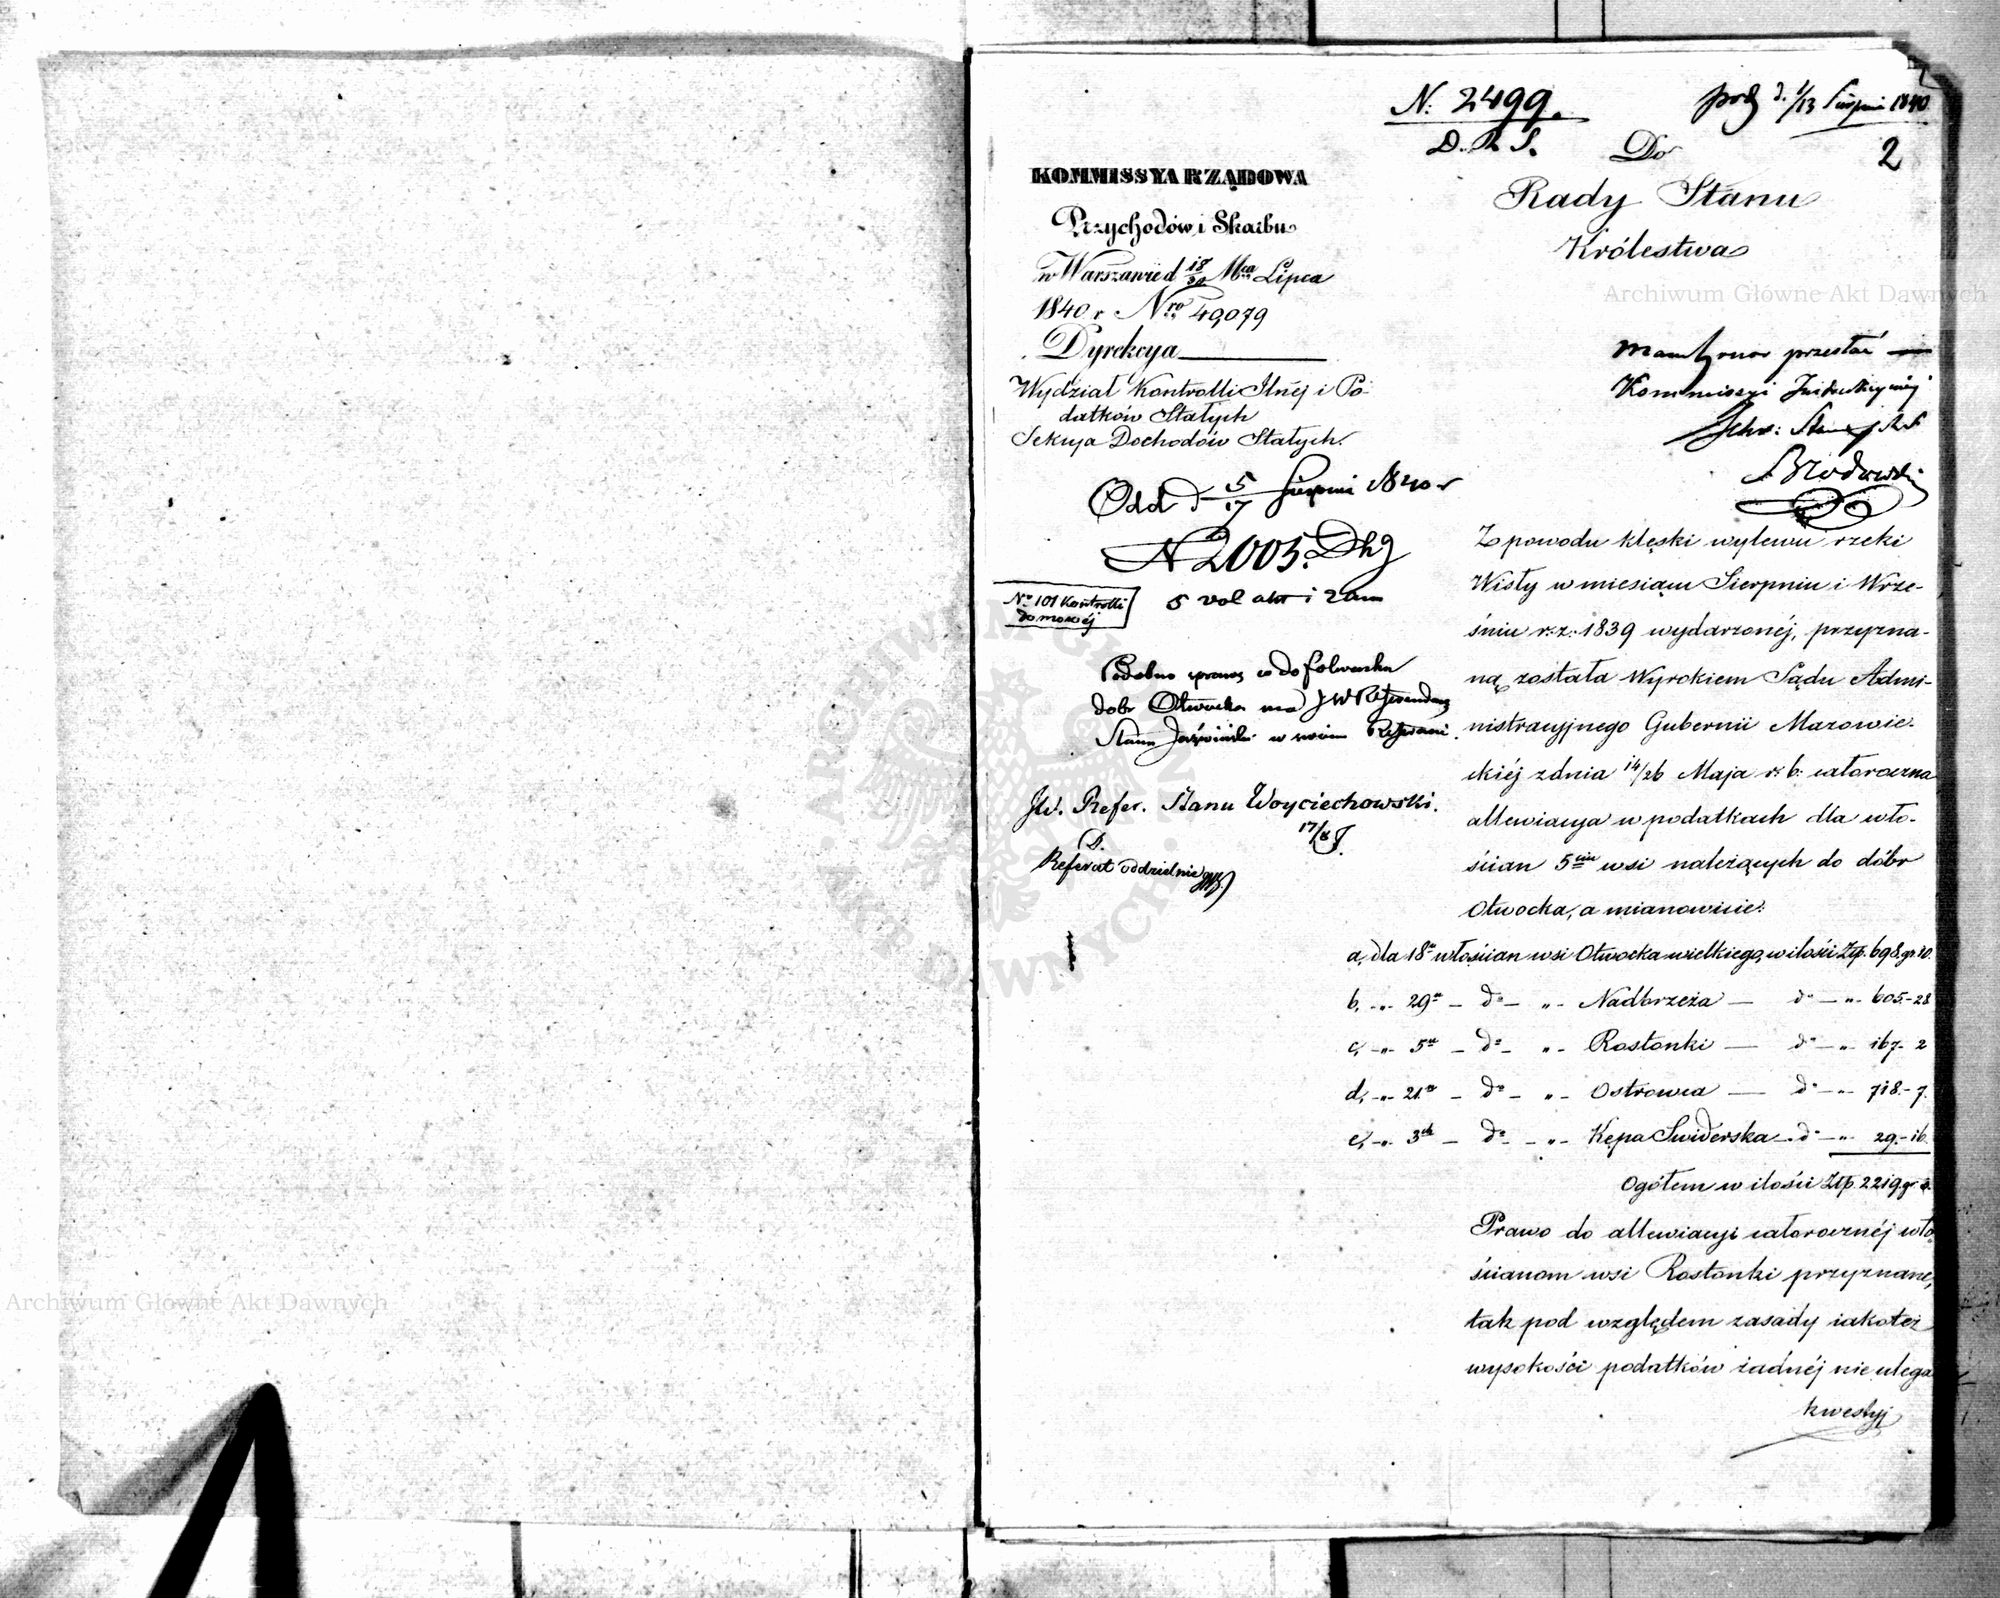 N: 2499.
D. R. S.
pod d. 1/13 Sierpnia 1840
2
Do
Rady Stanu
Królestwa
KOMMISSYA RZĄDOWA
Przychodów i Skarbu
w Warszawie d 18/30 Mca Lipca
1840 r Nro 49079
Dyrekcya
Wydział Kontrolli Stnéj i Po-
datków Stałych
Sekcya Dochodów Stałych.
Archiwum Główne Akt Dawnych
Mam honor przesłać
Kommissyi
Brodowski
Odd d 5/17 Sierpnia 1840 r
N 2005.
5 vol akt i
No 101 Kontrolli
domowéj
Podobną sprawę co do folwarku
dobr Otwocka ma JW Referendarz
Stanu w swoim Referacie.
JW. Refer. Stanu Woyciechowski.
17/8
D.
Referat oddzielnie
Z powodu klęski wylewu rzeki
Wisły w miesiącu Sierpniu i Wrze-
śniu r: z: 1839 wydarzonéj, przyzna-
ną została Wyrokiem Sądu Admi-
nistracyjnego Gubernii Mazowie-
ckiéj z dnia 14/26 Maja r: b: całoroczna
allewiacya w podatkach dla wło-
ścian 5ciu wsi należących do dóbr
Otwocka, a mianowicie:
a, dla 18u włościan wsi Otwocka wielkiego, w ilości Złp. 698. gr. 10.
b, -„- 29u - do - „- Nadbrzeża — do — „- 605.-28
c, -„- 5u - do - „- Rosłonki — do — „- 167.- 2
d, -„- 21u - do - „- Ostrowca — do — „- 718.- 7.
e, -„- 3ch - do - „- Kępa Swiderska - do — „- 29.- 16.
Ogółem w ilości Złp. 2219 gr 3.
Prawo do allewiacyi całorocznéj wło-
ścianom wsi Rosłonki przyznane,
tak pod względem zasady iakoteż
wysokości podatków żadnéj nie ulega
kwestyi
Archiwum Główne Akt Dawnych